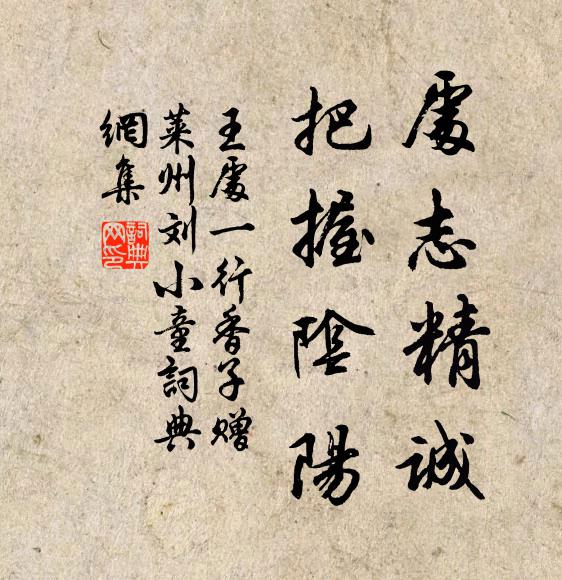 處志精誠
把握陰陽
王處一行香子赠
莱州刘小童詞典
網集
詞典网印